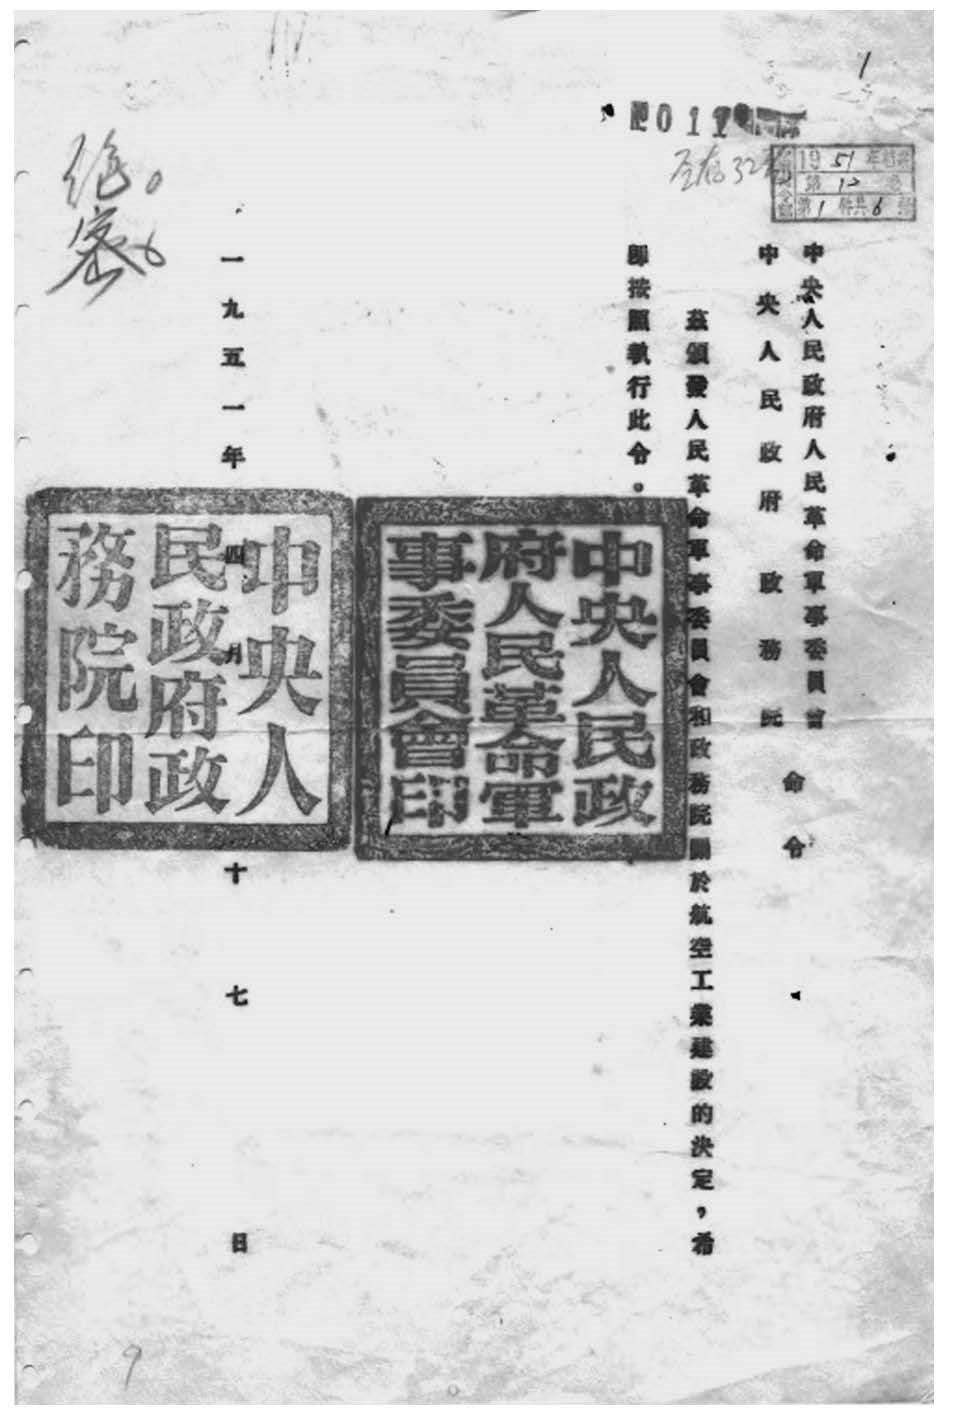 中央人民政府人民革命軍事委員會
中央人民政府政務院
命令
茲頒發人民革命軍事委員會和政務院關於航空工業建設的決定，希
即按照執行此令。
中央人民政
府人民革命軍
事委員會印
一九五一年四月十七日
中央人
民政府政
務院印
絕
密
011
1951年
第12卷
第1件共6張
1
9